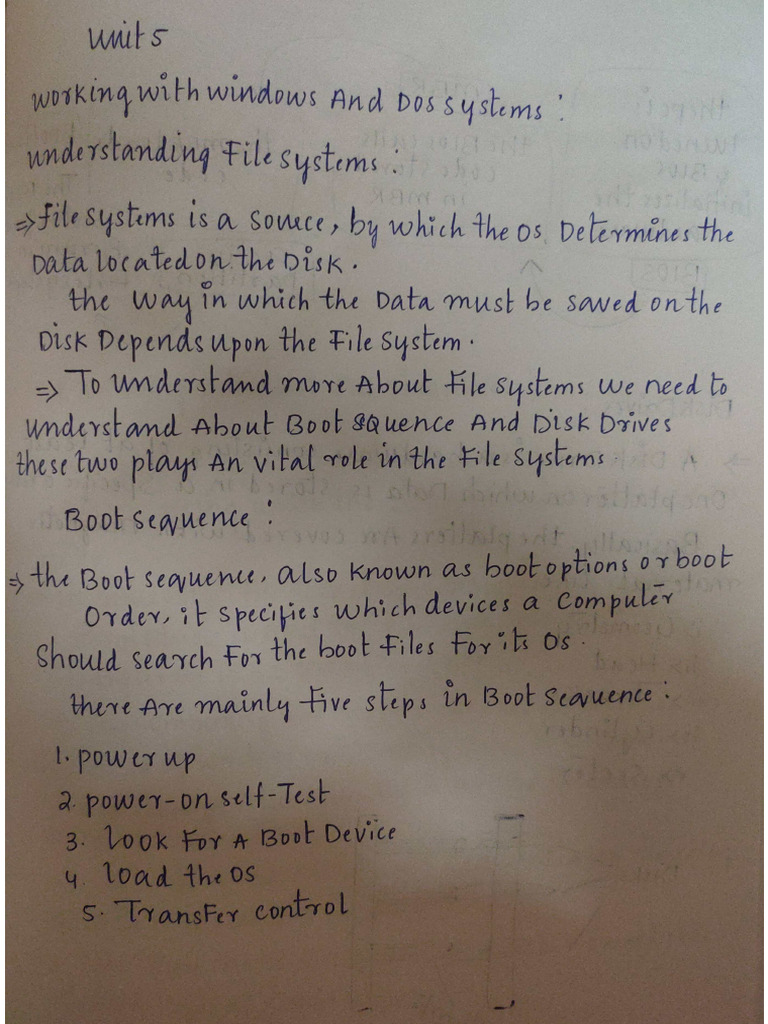 Unit 5
working with windows And DOS systems :
understanding File systems :
⇒ File systems is a source, by which the OS Determines the
Data located on the Disk.
the way in which the Data must be saved on the
Disk Depends upon the File system.
⇒ To understand more About File systems we need to
understand About Boot sequence And Disk Drives
these two plays An vital role in the File systems
Boot sequence :
⇒ the Boot sequence, also known as boot options or boot
order, it specifies which devices a computer
should search For the boot files For its OS.
there Are mainly Five steps in Boot Sequence :
1. power up
2. power-on self-Test
3. Look For A Boot Device
4. load the OS
5. Transfer control